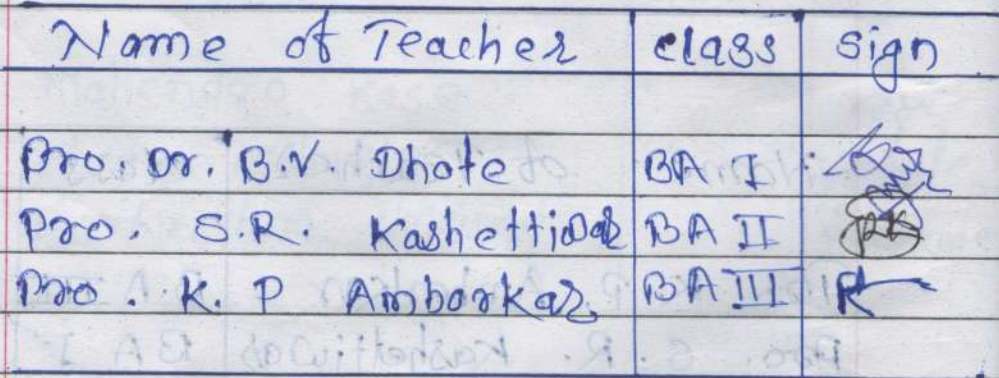 Name of Teacher class sign
Pro. Dr. B.V. Dhote BA I
Pro. S.R. Kashettiwar BA II
Pro. K. P Amborkar BA III